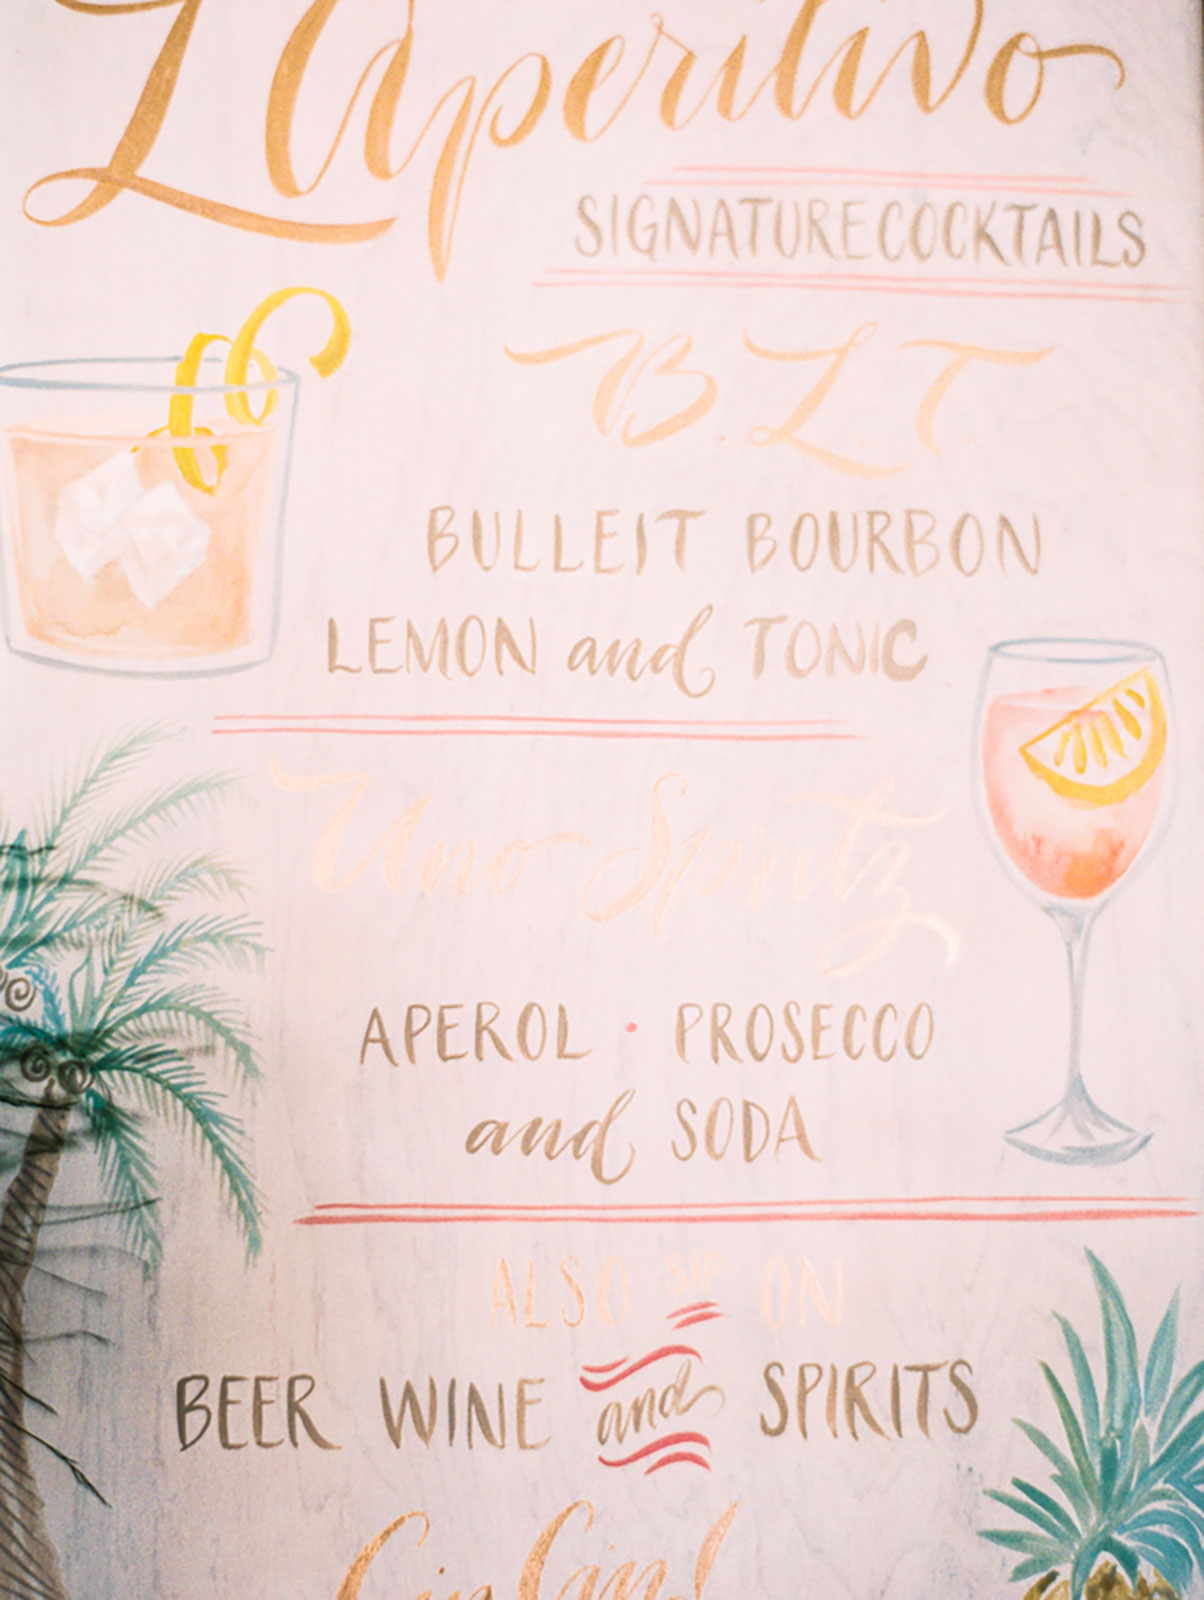 L'Aperitivo
SIGNATURE COCKTAILS
B.L.T.
BULLEIT BOURBON
LEMON and TONIC
Uno Spritz
APEROL · PROSECCO
and SODA
ALSO SIP ON
BEER WINE and SPIRITS
Cin Cin!